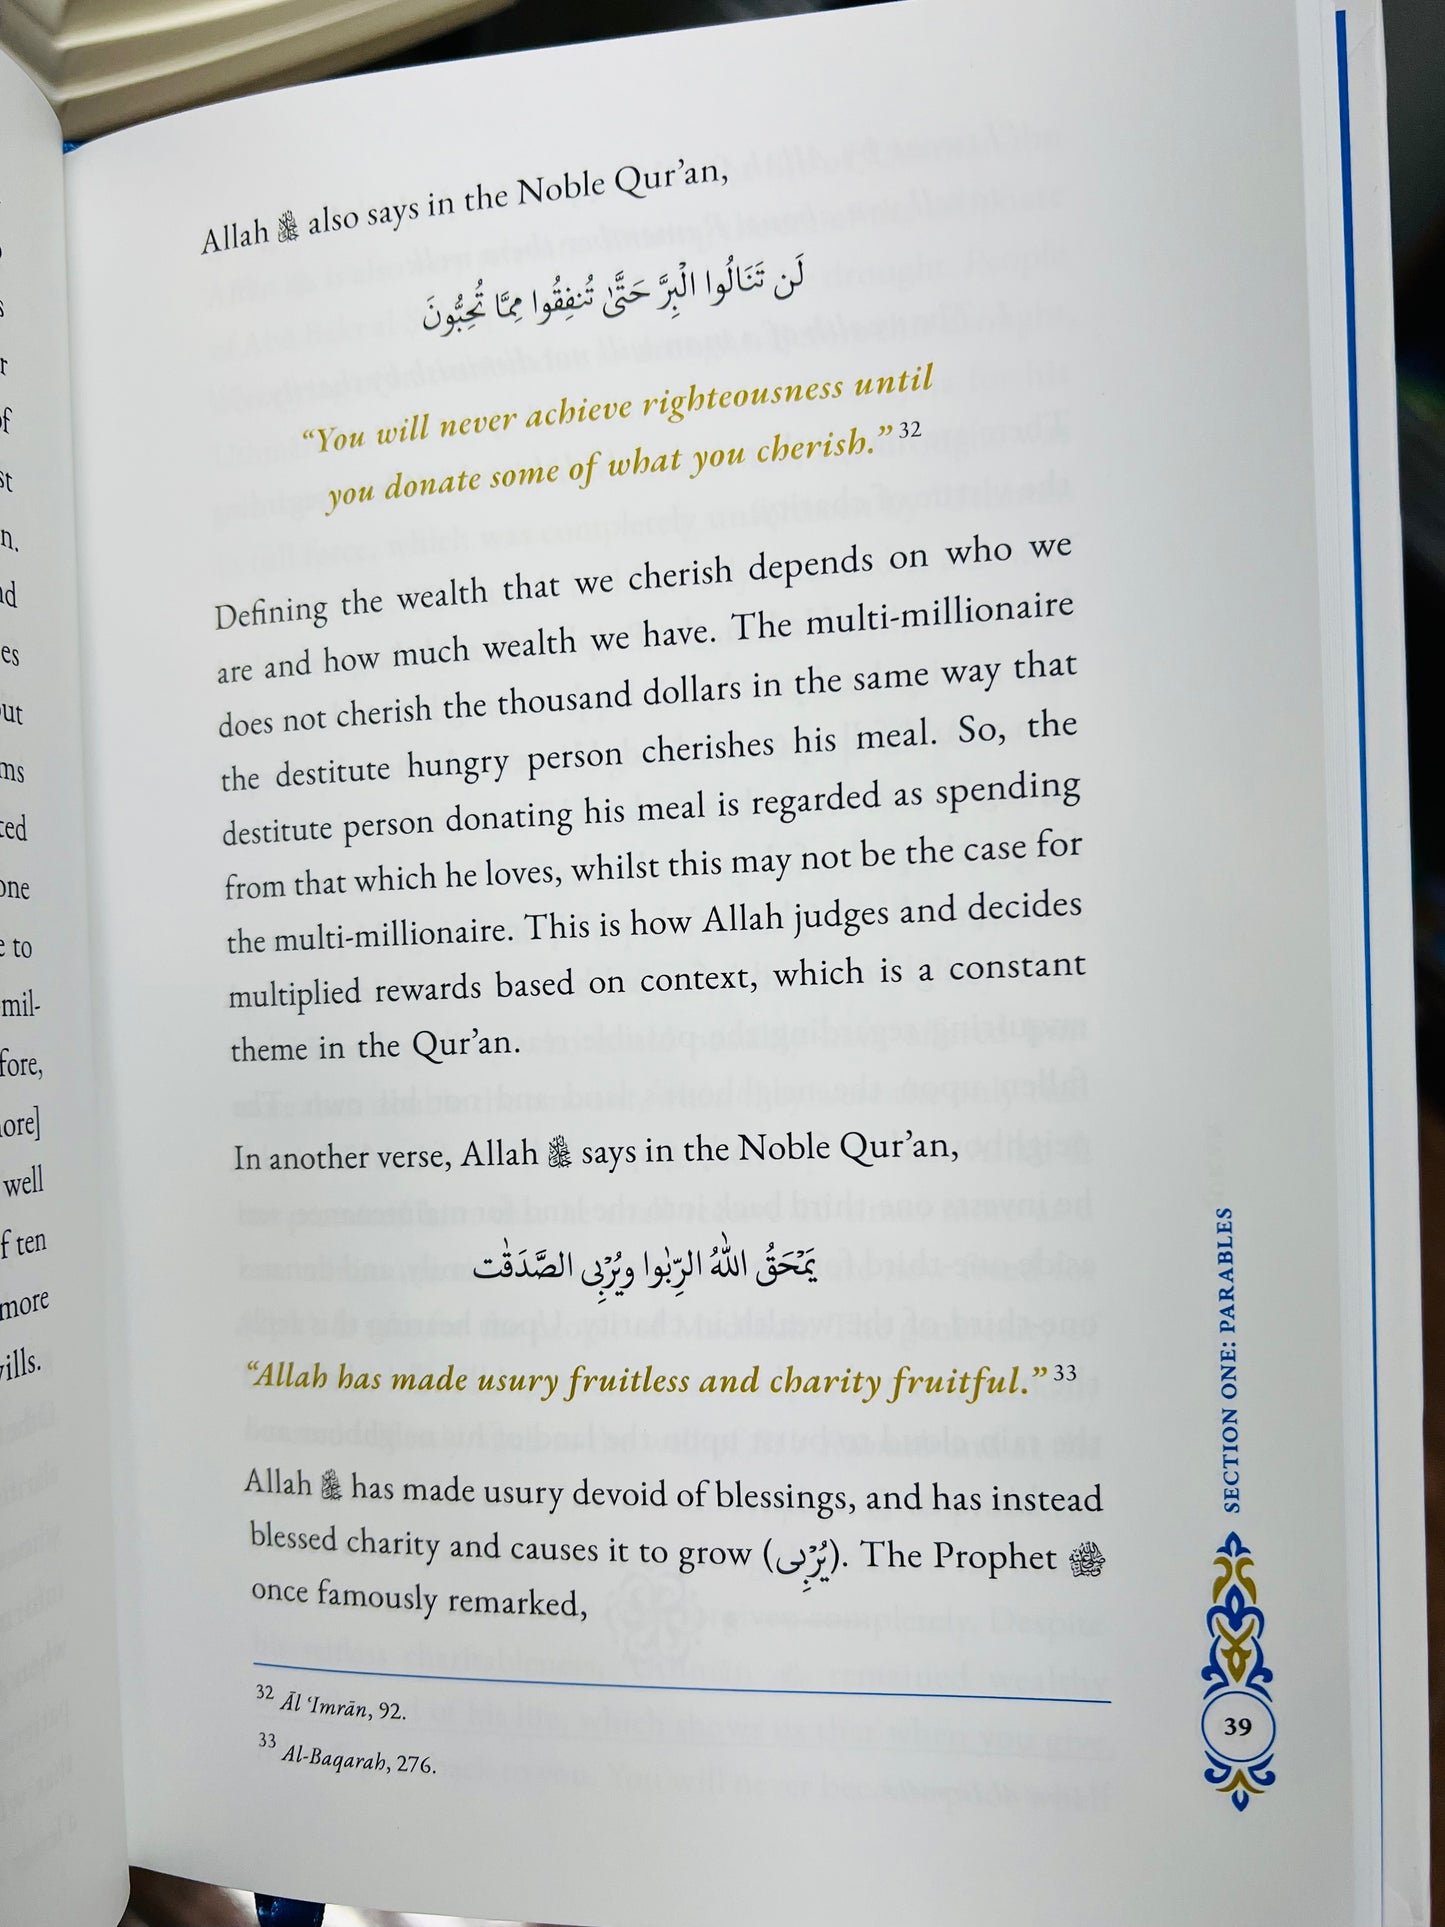 Allah ﷻ also says in the Noble Qur’an,
لَن تَنَالُوا الْبِرَّ حَتَّىٰ تُنفِقُوا مِمَّا تُحِبُّونَ
“You will never achieve righteousness until
you donate some of what you cherish.” 32
Defining the wealth that we cherish depends on who we
are and how much wealth we have. The multi-millionaire
does not cherish the thousand dollars in the same way that
the destitute hungry person cherishes his meal. So, the
destitute person donating his meal is regarded as spending
from that which he loves, whilst this may not be the case for
the multi-millionaire. This is how Allah judges and decides
multiplied rewards based on context, which is a constant
theme in the Qur’an.
In another verse, Allah ﷻ says in the Noble Qur’an,
يَمْحَقُ اللَّهُ الرِّبَٰوا وَيُرْبِى الصَّدَقَٰت
“Allah has made usury fruitless and charity fruitful.” 33
Allah ﷻ has made usury devoid of blessings, and has instead
blessed charity and causes it to grow (يُرْبِى). The Prophet ﷺ
once famously remarked,
32 Āl ‘Imrān, 92.
33 Al-Baqarah, 276.
SECTION ONE: PARABLES
39